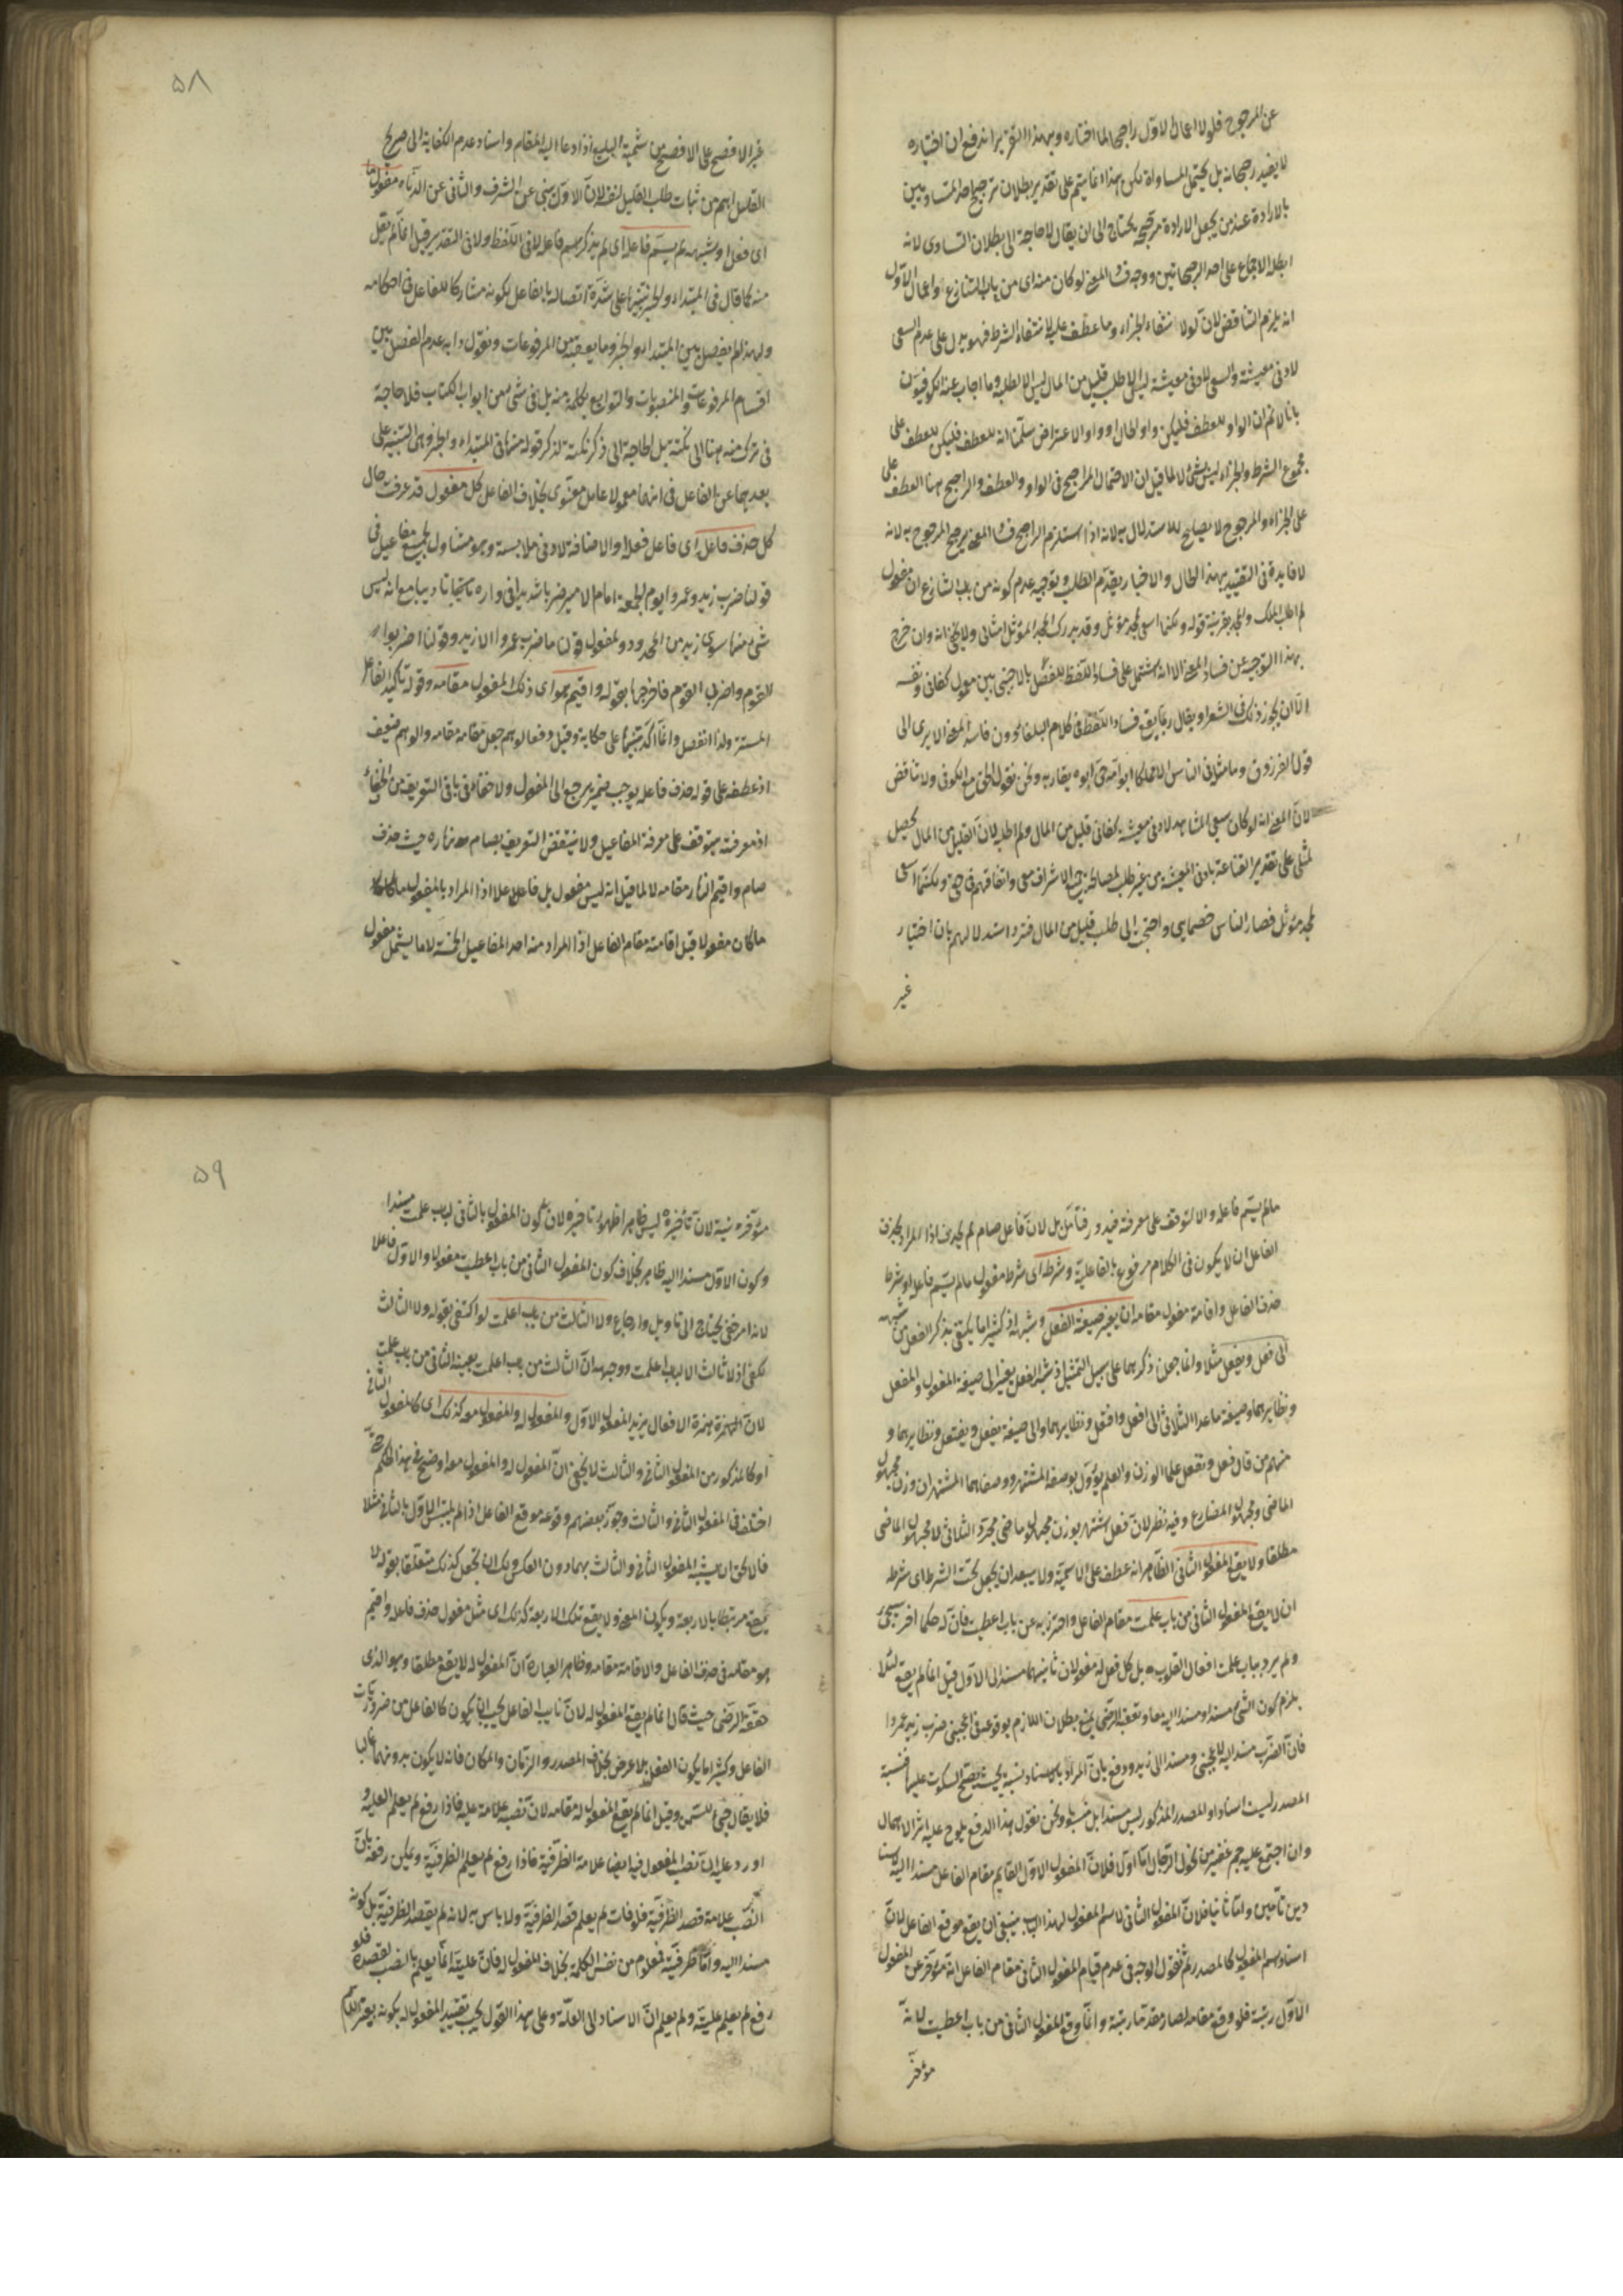 عن المرجوح فلولا اعمال الاول راجحا لما اختاره وبهذا التقرير اندفع ان اختياره
لا يفيد رجحانه بل يحتمل المساواة لكن هذا انما يتم على تقدير بطلان ترجيح احد المتساويين
بالارادة عند من يجعل الارادة مرجحة يحتاج الى ان يقال لا حاجة الى بطلان التساوى لانه
ابطله الاجماع على احد الرجحانين ووجه فساد المعنى لو كان من باب التنازع واعمال الاول
انه يلزم التناقض لان لولا انتفاء الجزاء وما عطف عليه لانتفاء الشرط فهو يدل على عدم السعى
لادنى معيشة والسعى لادنى معيشة ليس الا طلب قليل من المال ليس الا لطلبه وما اجاب عنه الكوفيون
بانا لا نم ان الواو للعطف فليكن واو الحال او واو الاعتراض سلمنا انه للعطف فليكن للعطف على
مجموع الشرط والجزاء ليس بشئ لا لما قيل ان الاحتمال الراجح فى الواو والعطف والراجح هنا العطف على
على الجزاء والمرجوح لا يصلح للاستدلال به لانه اذا استلزم الراجح فساد المعنى يرجح المرجوح به لانه
لا فايدة فى التقييد بهذا الحال والاخبار بعدم الطلب وتوجيه عدم كونه من باب التنازع ان مفعول
لم اطلب الملك والمجد بقرينة قوله ولكنما اسعى لمجد مؤثل وقد يدرك المجد المؤثل امثالى ولا يخفى انه وان خرج
بهذا التوجيه عن فساد المعنى الا انه يشتمل على فساد اللفظ للفصل بالاجنبى بين معمول كفانى ونفسه
الا ان يجوز ذلك فى الشعر او يقال ربما يقع فساد اللفظ فى كلام البلغاء دون فاسد المعنى الا يرى الى
قول الفرزدق وما مثله فى الناس الا مملكا ابو امه حى ابوه يقاربه ونحن نقول الحق مع الكوفى ولا تناقض
لان المعنى انه لو كان سعى المشاهد لادنى معيشة كفانى قليل من المال ولم اطلبه لان القليل من المال يحصل
لمثلى على تقدير القناعة بادنى المعيشة من غير طلب لمصالحة جميع الاشراف معى واتفاقهم فى حقى ولكنما اسعى
لمجد مؤثل فصار الناس خصماى واحتجت الى طلب قليل من المال فترد استدلالهم بان اختيار
غير
٥٨
غير الافصح على الافصح من شيمة البليغ اذا دعا اليه المقام واسناد عدم الكفاية الى صريح
القليل اهم من اثبات طلب القليل لنفسه لان الاول ينبئ عن الشرف والثانى عن الدناءة مفعول ما
اى فعل او شبهه لم يسم فاعله اى لم يذكر اسم فاعله لا فى اللفظ ولا فى التقدير قيل انما لم يقل
منه كما قال فى المبتداء والخبر تنبيها على شدة اتصاله بالفاعل لكونه مشاركا للفاعل فى احكامه
ولهذا لم يفصل بين المبتداء والخبر وما يعقبه من المرفوعات ونقول دابه عدم الفصل بين
اقسام المرفوعات والمنصوبات والتوابع بكلمة منه بل فى شئ من ابواب الكتاب فلا حاجة
فى ترك منه هنا الى نكتة بل الحاجة الى ذكر نكتة لذكر قوله منها فى المبتداء والخبر وهى التنبيه على
بعدهما عن الفاعل فى انهما معمولا عامل معنوى بخلاف الفاعل كل مفعول قد عرفت حال
كل حذف فاعله اى فاعل فعله والاضافة لادنى ملابسة وهو متناول لجميع مفاعيل فى
قولنا ضرب زيد وعمروا يوم الجمعة امام الامير ضربا شديدا فى داره تاديبا مع انه ليس
شئ منها سوى زيد من المحدود ولمفعول قولنا ما ضرب عمروا الا زيد وقولنا اضربوا
القوم واضرب القوم فاخرجها بقوله واقيم هو اى ذلك المفعول مقامه وقوله تاكيد الفاعل
المستتر ولذا انفصل وانما اكد تنبيها على حكاية وقيل دفعا لوهم جعل مقامه مقامه والوهم ضعيف
اذ عطفه على قوله حذف فاعله يوجب ضمير يرجع الى المفعول ولا خفاء فى باقى التعريف من الخفاء
اذ معرفته يتوقف على معرفة المفاعيل ولا ينتقض التعريف بصام نهاره حيث حذف
صام واقيم النهار مقامه لا لما قيل انه ليس مفعول بل فاعل علا اذا المراد بالمفعول
ما كان مفعولا قبل اقامته مقام الفاعل اذ المراد منه احد المفاعيل الخمسة لا ما يشمل مفعول
ما لم يسم فاعله والا لتوقف على معرفة فيدور فتأمل بل لان فاعل صام لم يحذف اذا المراد بحذف
الفاعل ان لا يكون فى الكلام مرفوع بالفاعلية وشرطه اى شرط مفعول ما لم يسم فاعله او شرط
حذف الفاعل واقامة مفعول مقامه ان يغير صيغة الفعل وشبهه اذ كثيرا ما يكتفى بذكر الفعل من شبهه
الى فعل ويفعل مثلا وانما جعلنا ذكرهما على سبيل التمثيل اذ شبه الفعل يغير الى صيغة المفعول والمفعل
ونظايرهما وصيغة ما عدا الثلاثى الى افعل وافتعل ونظايرهما والى صيغة يفعل ويفتعل ونظايرهما و
منهم من قال فعل ويفعل علما الوزن والعلم يؤول بوصفه المشتهر ووصفاهما المشتهران وزن مجهول
الماضى ومجهول المضارع وفيه نظر لان فعل اشتهر بوزن مجهول ماضى مجرد الثلاثى لا مجهول الماضى
مطلقا ولا يقع المفعول الثانى الظاهر انه عطف على الاسمية ولا يبعد ان يجعل تحت الشرط اى شرطه
ان لا يقع المفعول الثانى من باب علمت مقام الفاعل واحترز به عن باب اعطيت فان له حكما اخر سيجئ
ولم يرد بباب علمت افعال القلوب بل كل فعل له مفعولان ثانيهما مسند الى الاول قيل انما لم يقع لئلا
يلزم كون الشئ مسندا ومسندا اليه معا وتعقبه الرضى بمنع بطلان اللازم بوقوعه فى اعجبنى ضرب زيد عمروا
فان الضرب مسند اليه لاعجبنى ومسند الى زيد ودفع بان المراد بالاسناد نسبة بحيث يصح السكوت عليها فنسبة
المصدر ليست اسنادا والمصدر المذكور ليس مسندا بل منسوبا ونحن نقول هذا الدفع يلوح عليه اثر الاهمال
وان اجتمع عليه جم غفير من فحول الرجال اما اولا فلان المفعول الاول القايم مقام الفاعل مسندا اليه
دين تامين واما ثانيا فلان المفعول الثانى لاسم المفعول لهذا الباب ينبغى ان يقع موقع الفاعل لان
اسناد اسم المفعول كالمصدر ثم نقول الوجه فى عدم قيام المفعول الثانى مقام الفاعل انه مؤخر عن المفعول
الاول رتبة فلو وقع مقامه لصار مقدما رتبة وانما وقع المفعول الثانى من باب اعطيت لانه
مؤخر
٥٩
مؤخره نية لان تأخيره ليس ظاهرا ظهور تاخيره لان كون المفعول الثانى لباب علمت مسندا
وكون الاول مسندا اليه ظاهر بخلاف كون المفعول الثانى من باب اعطيت مفعولا والاول فاعلا
لانه امر خفى يحتاج الى تاويل وارجاع ولا الثالث من باب اعلمت لو اكتفى بقوله ولا الثالث
لكفى اذ لا ثالث الا لباب اعلمت ووجهه ان الثالث من باب اعلمت بعينه الثانى من باب علمت
لان الهمزة همزة الافعال يزيد المفعول الاول والمفعول له والمفعول معه كذلك اى كالمفعول الثانى
او كالمذكور من المفعول الثانى والثالث لا يخفى ان المفعول له والمفعول معه اوضح فى هذا الحكم
اختلف فى المفعول الثانى والثالث وجوز بعضهم وقوعه موقع الفاعل اذا لم يلتبس الاول بالثانى مثلا
فالاحق ان يشبه المفعول الثانى والثالث بهما دون العكس ولك ان تجعل كذلك متعلقا بقوله لا
يقع مرتبطا بالاربعة ويكون المعنى ولا يقع تلك الاربعة كذلك اى مثل مفعول حذف فاعله واقيم
هو مقامه فى حذف الفاعل والاقامة مقامه وظاهر العبارة ان المفعول له لا يقع مطلقا وهو الذى
حققه الرضى حيث قال انما لم يقع المفعول له لان نايب الفاعل يجب ان يكون كالفاعل من ضروريات
الفاعل وكثيرا ما يكون الفعل بلا غرض بخلاف المصدر والزمان والمكان فانه لا يكون بدونها غالبا
فلا يقال جئ للسمن وقيل انما لم يقع المفعول له مقامه لان نصبه علامة علية فاذا رفع لم يعلم العلية و
اورد عليه ان نصب المفعول فيه ايضا علامة الظرفية فاذا رفع لم يعلم الظرفية ويمكن رفعه بان
النصب علامة قصد الظرفية فلو فات لم يعلم قصد الظرفية ولا باس به لانه لم يقصد الظرفية بل كونه
مسندا اليه واما ظرفيته فمعلوم من نفس الكلمة بخلاف المفعول له فان عليته انما يعلم بالنصب لقصده فلو
رفع لم يعلم عليته ولم يعلم ان الاسناد الى العلة وعلى هذا القول يجب تقييد المفعول له بكونه بغير اللام